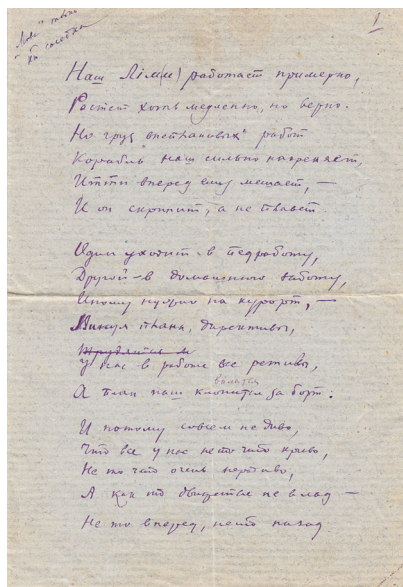 1
Наш Лім(и) работает примерно,
Растет хоть медленно, но верно.
Но груз внеплановых работ
Корабль наш сильно накреняет,
Итти вперед ему мешает, —
И он скрипит, а не плывет.
Один уходит в педработу,
Другой – в домашнюю заботу,
Иному нужно на курорт, —
Минуя планы, директивы,
У нас в работе все ретивы,
валится
А план наш клонится за борт.
И потому совсем не диво,
Что все у нас не то что криво,
Не то что очень нерадиво,
А как то движется не в лад —
Не то вперед, не то назад.